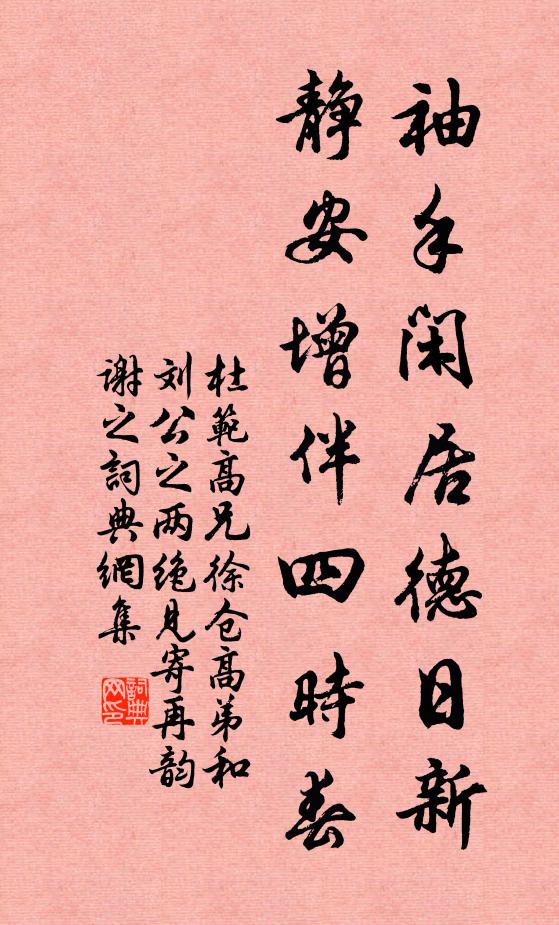 袖手闲居德日新
静安增伴四時春
杜範高兄徐仓高弟和
刘公之两绝見寄再韵
謝之詞典網集
詞典网印